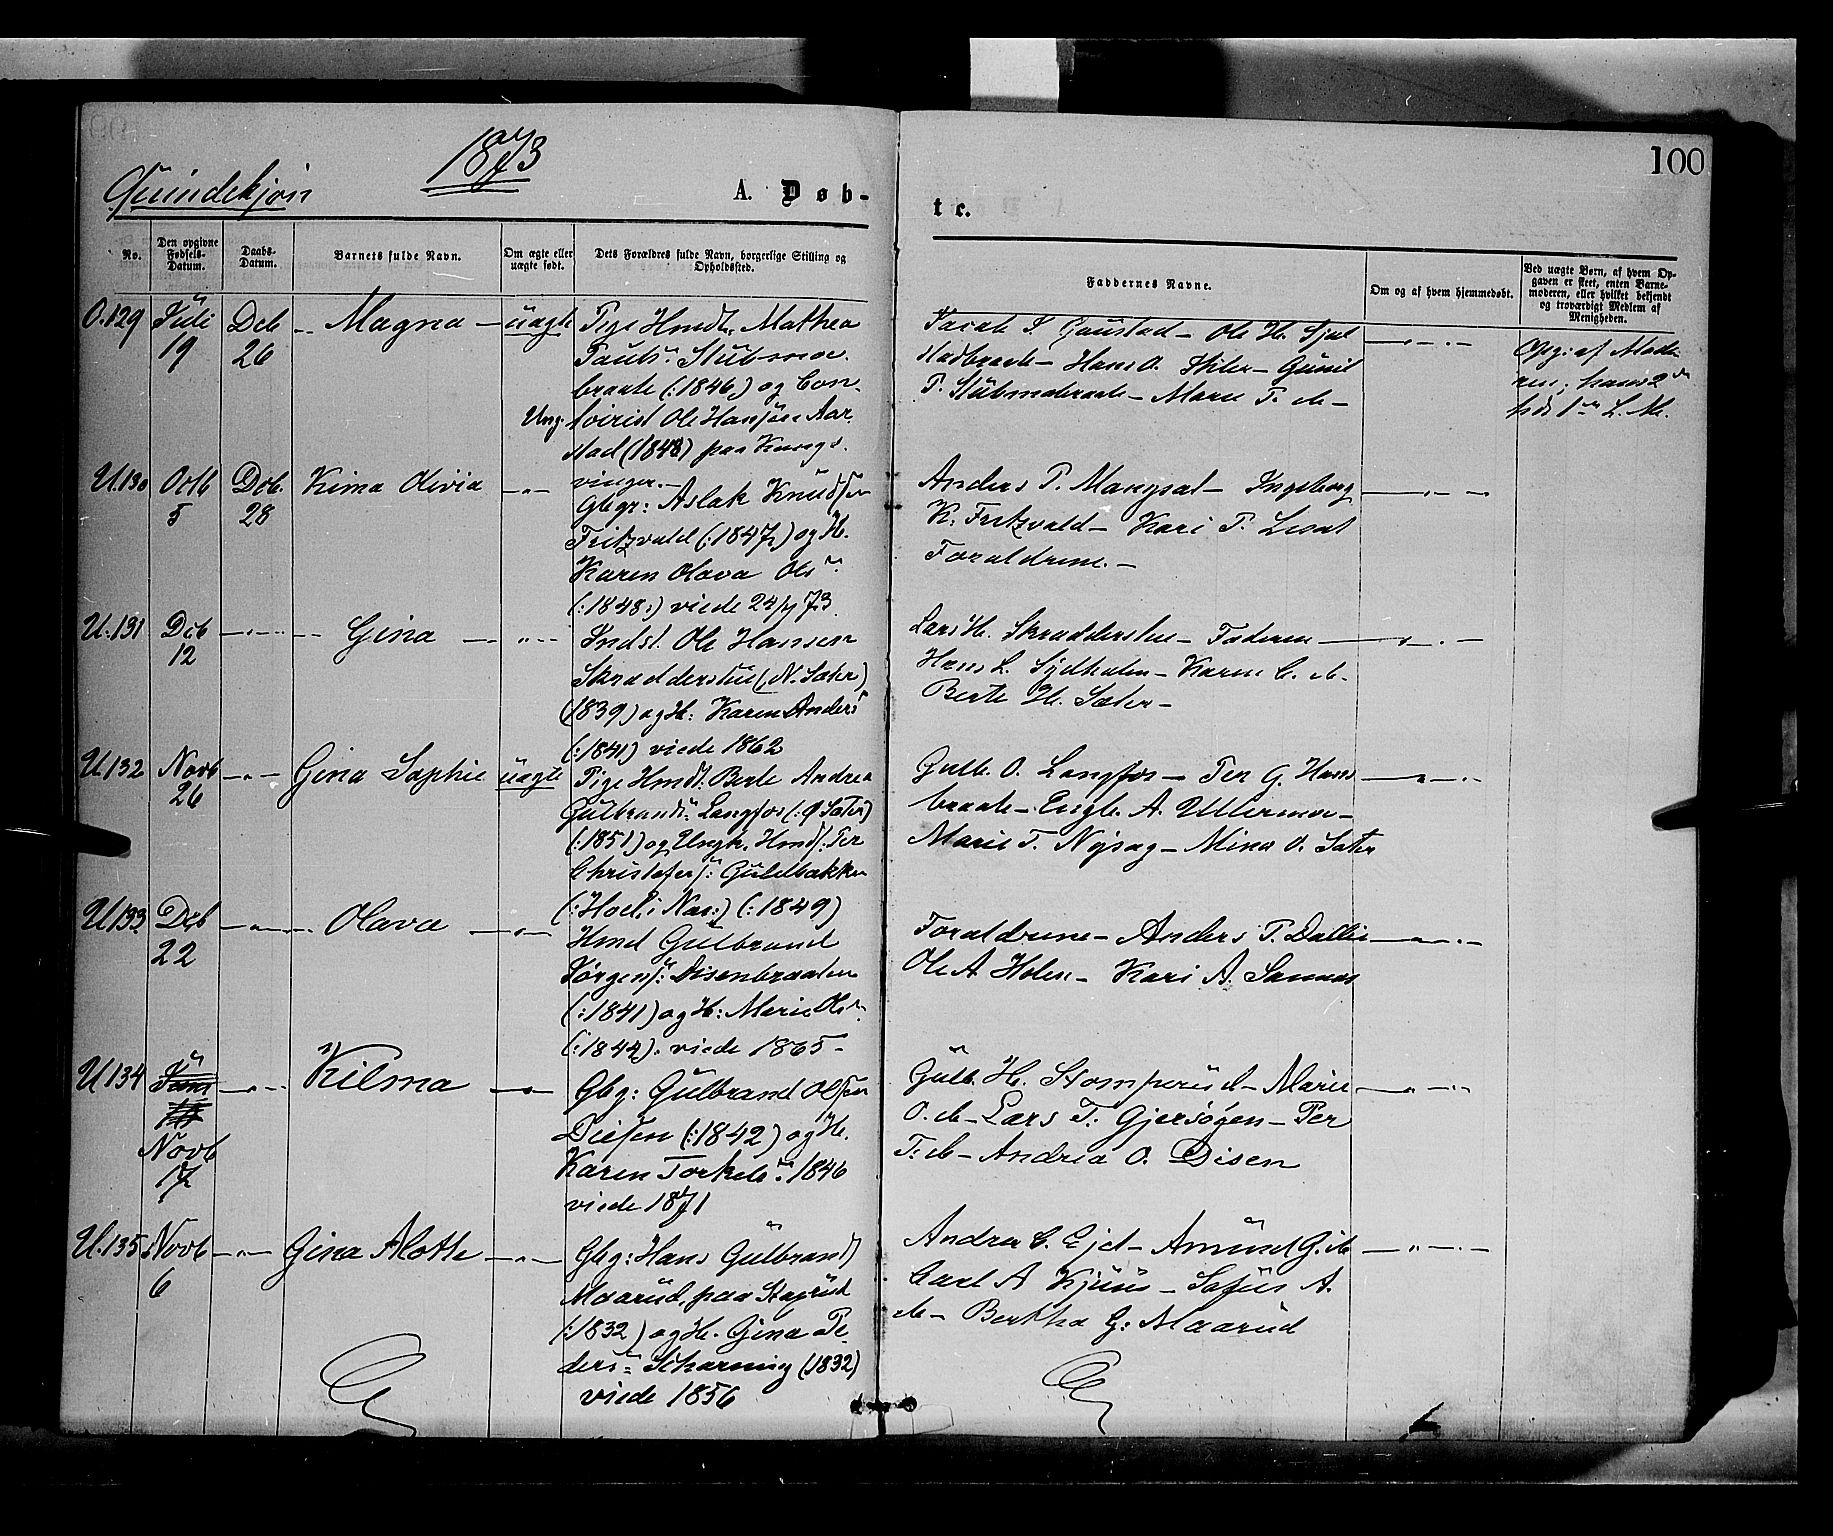 1873
100
Quindekjøn
A. Døb-
te.
No.
Den opgivne Fødsels-Datum.
Daabs-Datum.
Barnets fulde Navn.
Om ægte eller uægte født.
Dets Forældres fulde Navn, borgerlige Stilling og Opholdssted.
Faddernes Navne.
Om og af hvem hjemmedøbt.
Ved uægte Børn, af hvem Opgaven er skeet, enten Barnemoderen, eller hvilket bekjendt og troværdigt Medlem af Menigheden.
O.129 Juli 19 Deb 26 Magna uægte
Pige Hmdt. Mathea
Pauls. Stubmoe-
braate (:1846) og
Ung. Ole Hansen Aar-
stad (1848) paa Kongs-
vinger.
Jacob S. Gaustad - Ole H. Sjul
stadbraate - Hans O. - Gunil
P. Stubmobraate - Marie P. do -
Opg: af Mode-
ren; hans 2
hds 1 L. M.
U.130 Octb 5 Deb. 28 Kima Olivia
Gbgr: Aslak Knudsen
Fritzvold (:1847) og H.
Karen Olava Ols
(:1848:) viede 73
Anders P. Mangsal - Ingeborg
K. Fritzvold - Kari P.
Forældrene. -
U.131 Deb 12 Gina
Indst. Ole Hansen
Skrædderstue (N. Sæter)
(1839) og H: Karen Anders
(:1841) viede 1862
Lars H. Skrædderstue - Faderen
Hans L. Sydhalen - Karen C. do -
Berte H. Sæter -
U.132 Novb 26 Gina Sophie uægte
Pige Hmdt. Berte Andrea
Gulbrands. Langfos (: Ø Sæter)
(:1851) og Ungk. Hmd. Per
Christofers: Guldbakken
(:Hoel i Næs:) (:1849)
Gulb. O. Langfos - Per G. Hans
braate - Engb. A. Ullermoe -
Marie T. Nysæg - Mina O. Sæter
U.133 Deb 22 Olava
Hmd Gulbrand
Jørgens: Disenbraaten
(:1841) og H: Marie Ols
(:1844). viede 1865 -
Forældrene - Anders P. Dallie
Ole A Holen - Kari A. Sannæs
U.134 Juni Novb 17 Kilma
Gbg: Gulbrand Olsen
Disen (:1842) og H.
Karen Torkels. 1846
viede 1871
Gulb. H. Stomperud - Marie
O. do - Lars T. Gjersøgen - Per
T. do - Andrea O. Disen
U.135 Novb 6 Gina Alotte
Gbg: Hans Gulbrands
Maarud, paa Stagrud
(:1832) og H. Gina Pe-
ders: Scharning (1832)
viede 1856
Andrea C. Ejet - Amund G. do
Carl A Kjuus - Sofus A.
do - Bertha G: Maarud